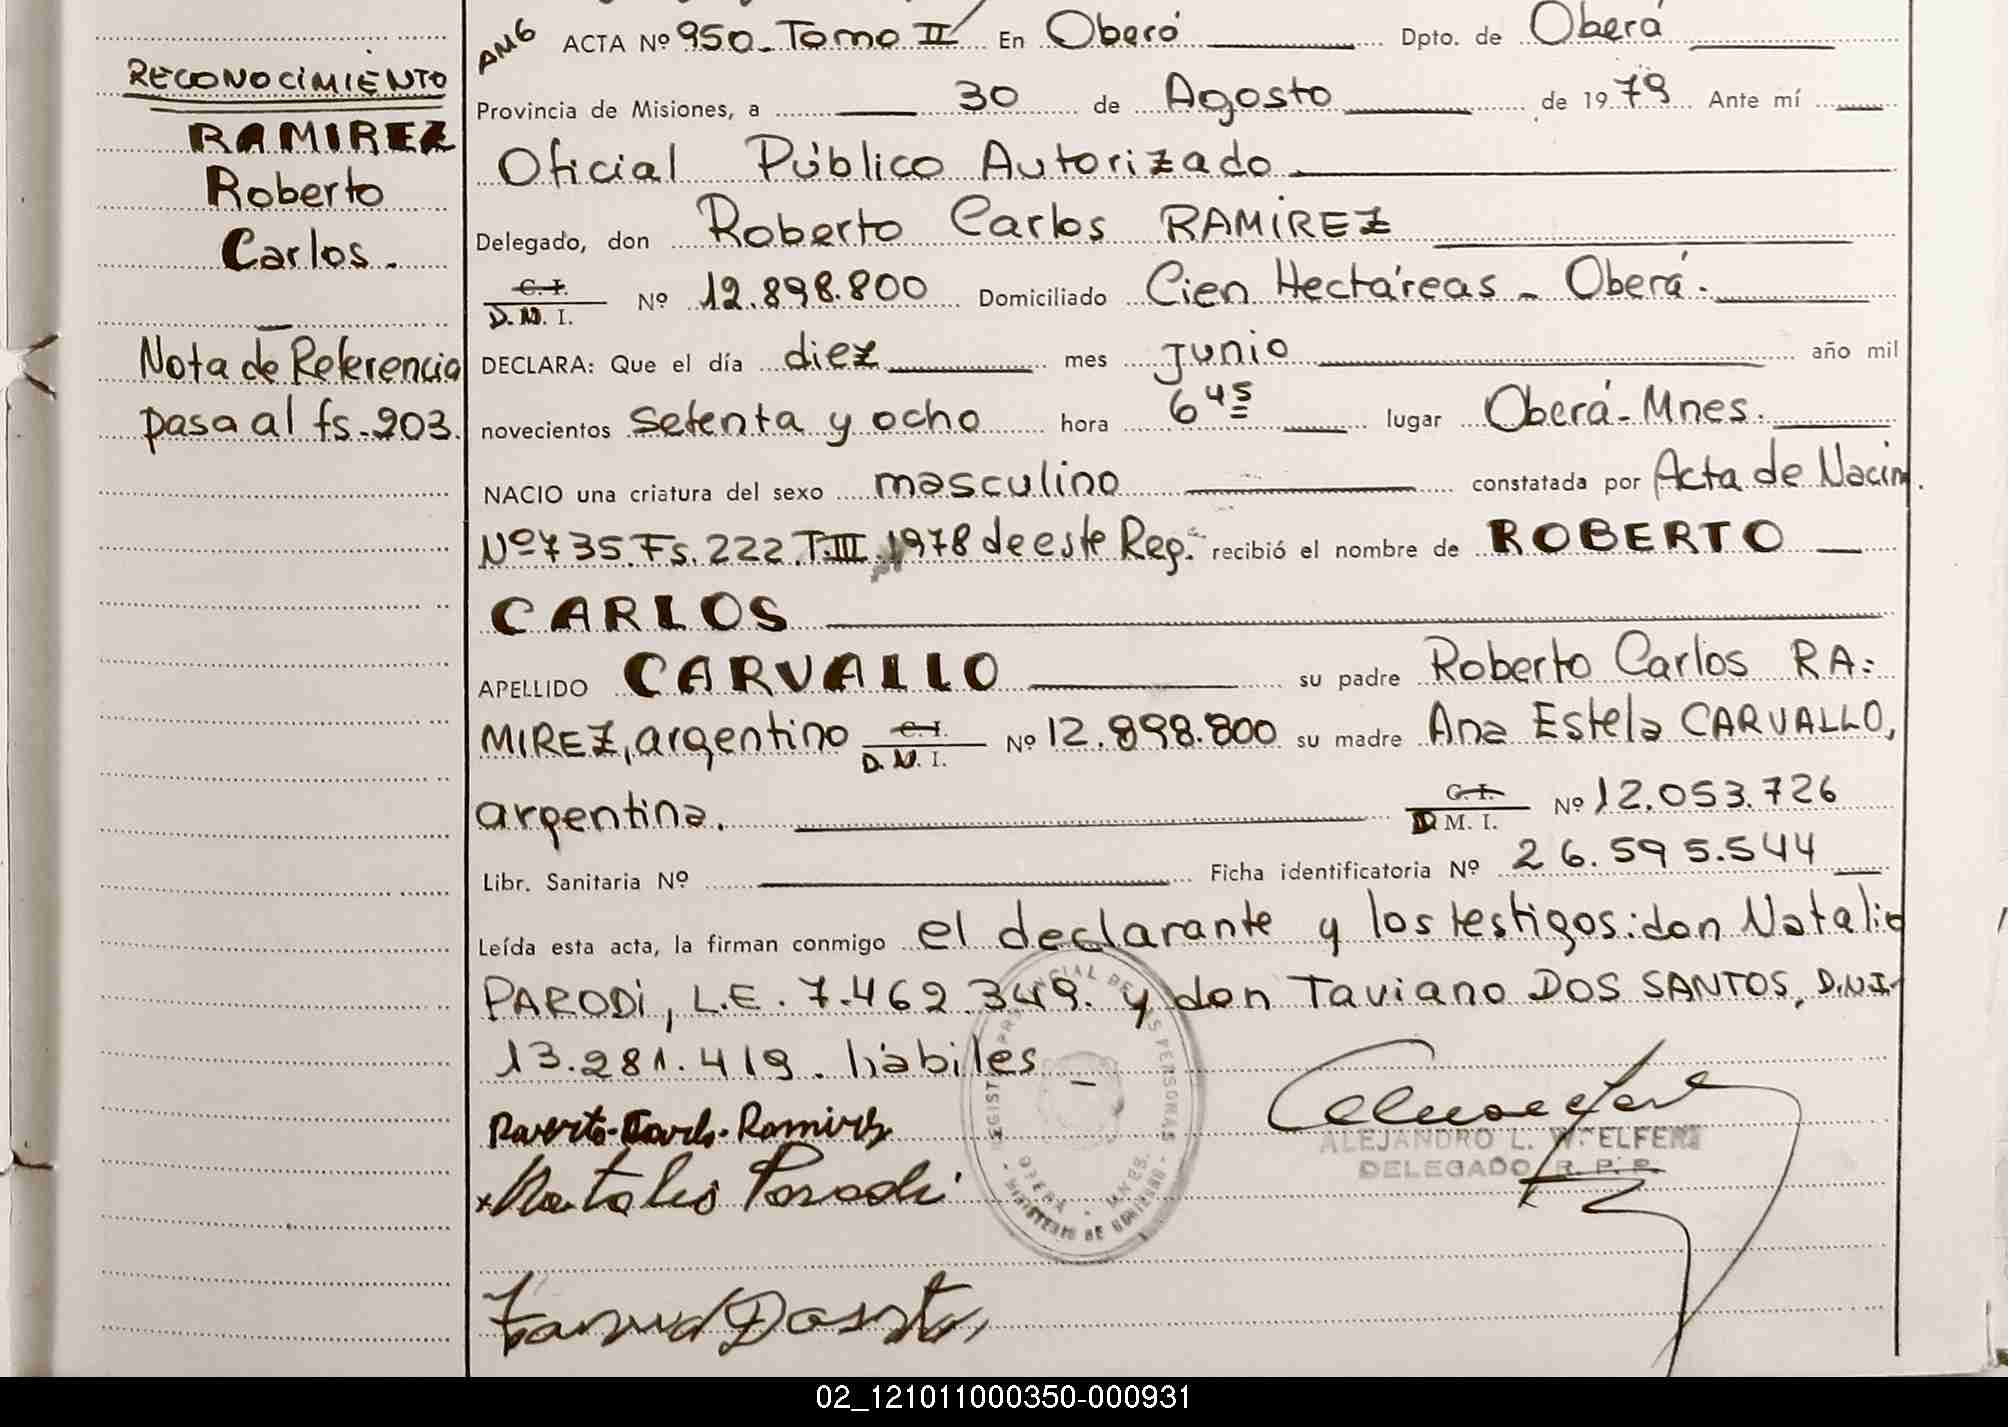 RECONOCIMIENTO
RAMIREZ
Roberto
Carlos.
Nota de Referencia
pasa al fs. 203.
ACTA Nº 950 Tomo II En Oberá Dpto. de Oberá
Provincia de Misiones, a 30 de Agosto de 1979 Ante mí
Oficial Público Autorizado
Delegado, don Roberto Carlos RAMIREZ
C. I.
D.N. I. Nº 12.898.800 Domiciliado Cien Hectáreas - Oberá.
DECLARA: Que el día diez mes junio año mil
novecientos setenta y ocho hora 6 45 lugar Oberá - Mnes.
NACIO una criatura del sexo masculino constatada por Acta de Nacim.
Nº 735 Fs. 222 T. III 1978 de este Reg. recibió el nombre de ROBERTO
CARLOS
APELLIDO CARVALLO su padre Roberto Carlos RA=
MIREZ, argentino C. I.
D. N. I. Nº 12.898.800 su madre Ana Estela CARVALLO,
argentina. C. I.
D M. I. Nº 12.053.726
Libr. Sanitaria Nº Ficha identificatoria Nº 26.595.544
Leída esta acta, la firman conmigo el declarante y los testigos: don Natalio
PARODI, L.E. 7.462.349. y don Taviano DOS SANTOS, D.N.I.
13.281.419. hábiles
Roverto Carlo Ramirez
Natalio Parodi
ALEJANDRO L.
DELEGADO R. P. P.
REGIST PROVINCIAL DE LAS PERSONAS
OBERA - MNES.
MINISTERIO DE GOBIERNO
02_121011000350-000931